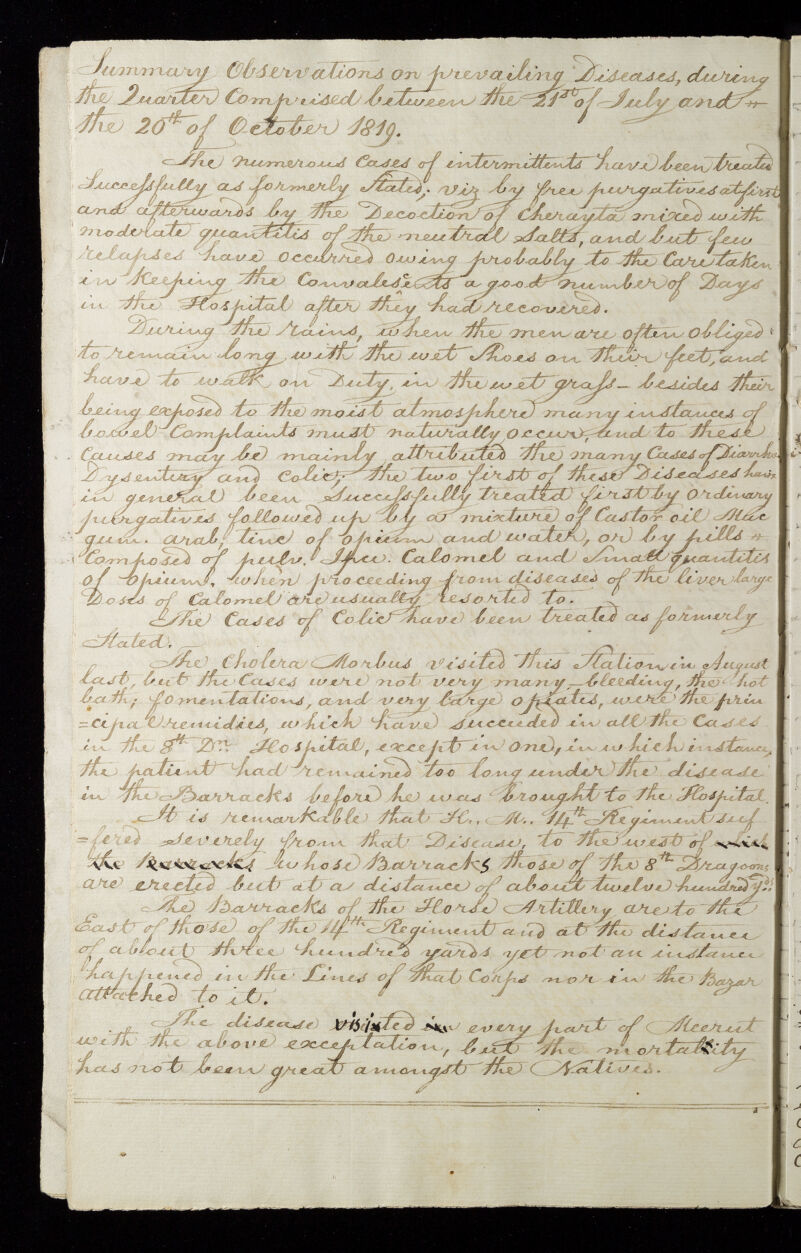 Summary Observations on prevailing Diseases, during
the Quarter Comprised between the 21st of July and
the 20th of October 1819.
The numerous Cases of intermittents have been treated
Successfully as formerly Stated; viz by free purgatives at first
and afterwards by the Decoction of Cherayta mixed with
moderate quantitis of the neutral Salts, and but few
relapses have occurred owing probably to the Care taken
in Keeping the Convalescents a good number of Days
in the Hospital after they had recovered.
During the rains, when the men are often obliged
to remain long with the wet Shoes on their feet, and
have to walk on Duty, in the wet grass – besides their
being exposed to the moist atmosphere many instances of
bowel Complaints must naturally occur, and to these
Causes may be mainly attributed the many Cases of
Dysentery and Colic; the two first of these Diseases have
in general been Successfully treated first by ordinary
purgatives followed up by a mixture of Castor oil Muc
gum. arab, tinc of opium and water, or by pills
Composed of pulv. Ipec. Calomel and Small quantitis
of opium, when proceeding from diseases of the liver large
Doses of Calomel are usually resorted to.
The Cases of Colic have been treated as formerly
Stated.
The Cholera Morbus visited this Station in August
last, but the Cases were not very many – bleeding, the hot
bath; fomentations, and very large opiates, were the prin
=cipal remidies, which have succeeded in all the Cases
in the 8th Dns Hospital, except in one, in which instance,
the patient had remained too long under the disease
in the Barracks before he was brought to the Hospital.
It is remarkable that H.. M.. 14th Regiment suf
=fered severely from that Disease, to the west of
the Barracks whose Barracks those of the 8th Dragoons
are erected but at a distance of about twelve hundred yds
The Barracks of the Horse Artillery are to the
East of those of the 14th Regiment and at the distance
of about three hundred yards yet not an instance
happened in the Lines of that Corps nor in the Bazar
attached to it.
The disease visited every part of Meerut
with the above exceptation, but the mortality
has not been great amongst the Natives.